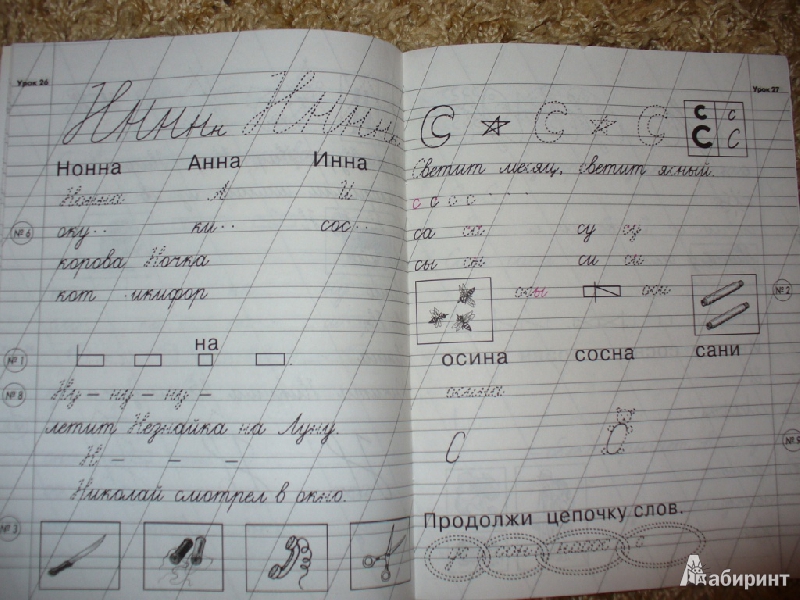 Урок 26
Нннн Нннн
Нонна Анна Инна
Нонна А И
№ 6 оку.. ки.. сос..
корова Ночка
кот икифор
на
№ 1
№ 8 Ну – ну – ну –
летит Незнайка на Луну.
Н – – –
Николай смотрел в окно.
№ 3
Урок 27
С С С с с С С
Светит месяц, светит ясный.
с с с с
са са су су
сы сы си си
осы оси № 2
осина сосна сани
осина
С С
№ 9
Продолжи цепочку слов.
ус сон насос с
Лабиринт